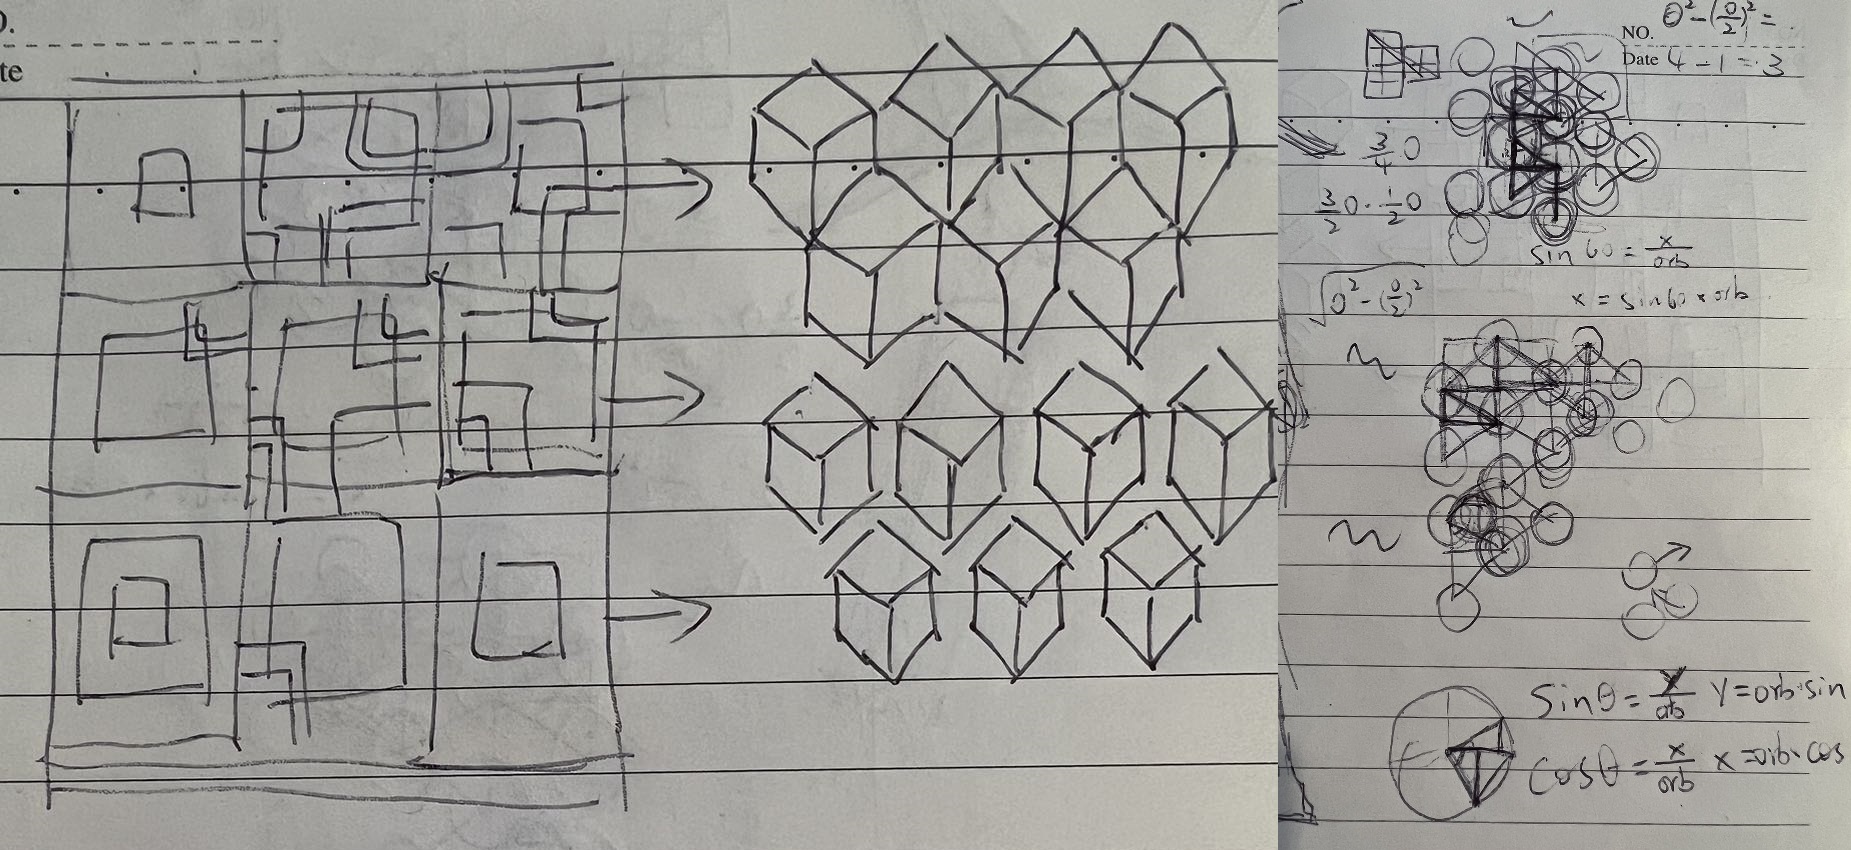 O.
te
NO. O²-(O/2)² =
Date 4-1=3
3/4 O
3/2 O · 1/2 O
sin 60 = x/orb
√O²-(O/2)²
x = sin60 × orb
Sinθ = y/orb Y=orb·sin
Cosθ = x/orb x=orb·cos